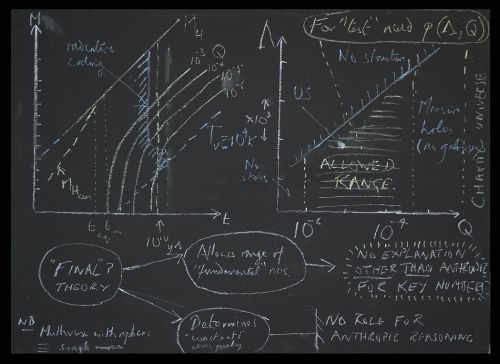 M
M_H
radiative
cooling
10^-3 Q
10^-4
10^-5
10^-6
T_v = 10^4 K
t
10^10 yrs
For "test" need p(Λ, Q)
Λ
No structure
US
×10^3
No
stars
ALLOWED
RANGE
Massive
holes
(no galaxies)
CHAOTIC UNIVERSE
10^-6
10^-4
Q
"FINAL"?
THEORY
Allows range of
"fundamental" nos.
NO EXPLANATION
OTHER THAN ANTHROPIC
FOR KEY NUMBERS
Determines
'constants'
uniquely
NO ROLE FOR
ANTHROPIC REASONING
NB
Multiverse with replicas
≡ single universe